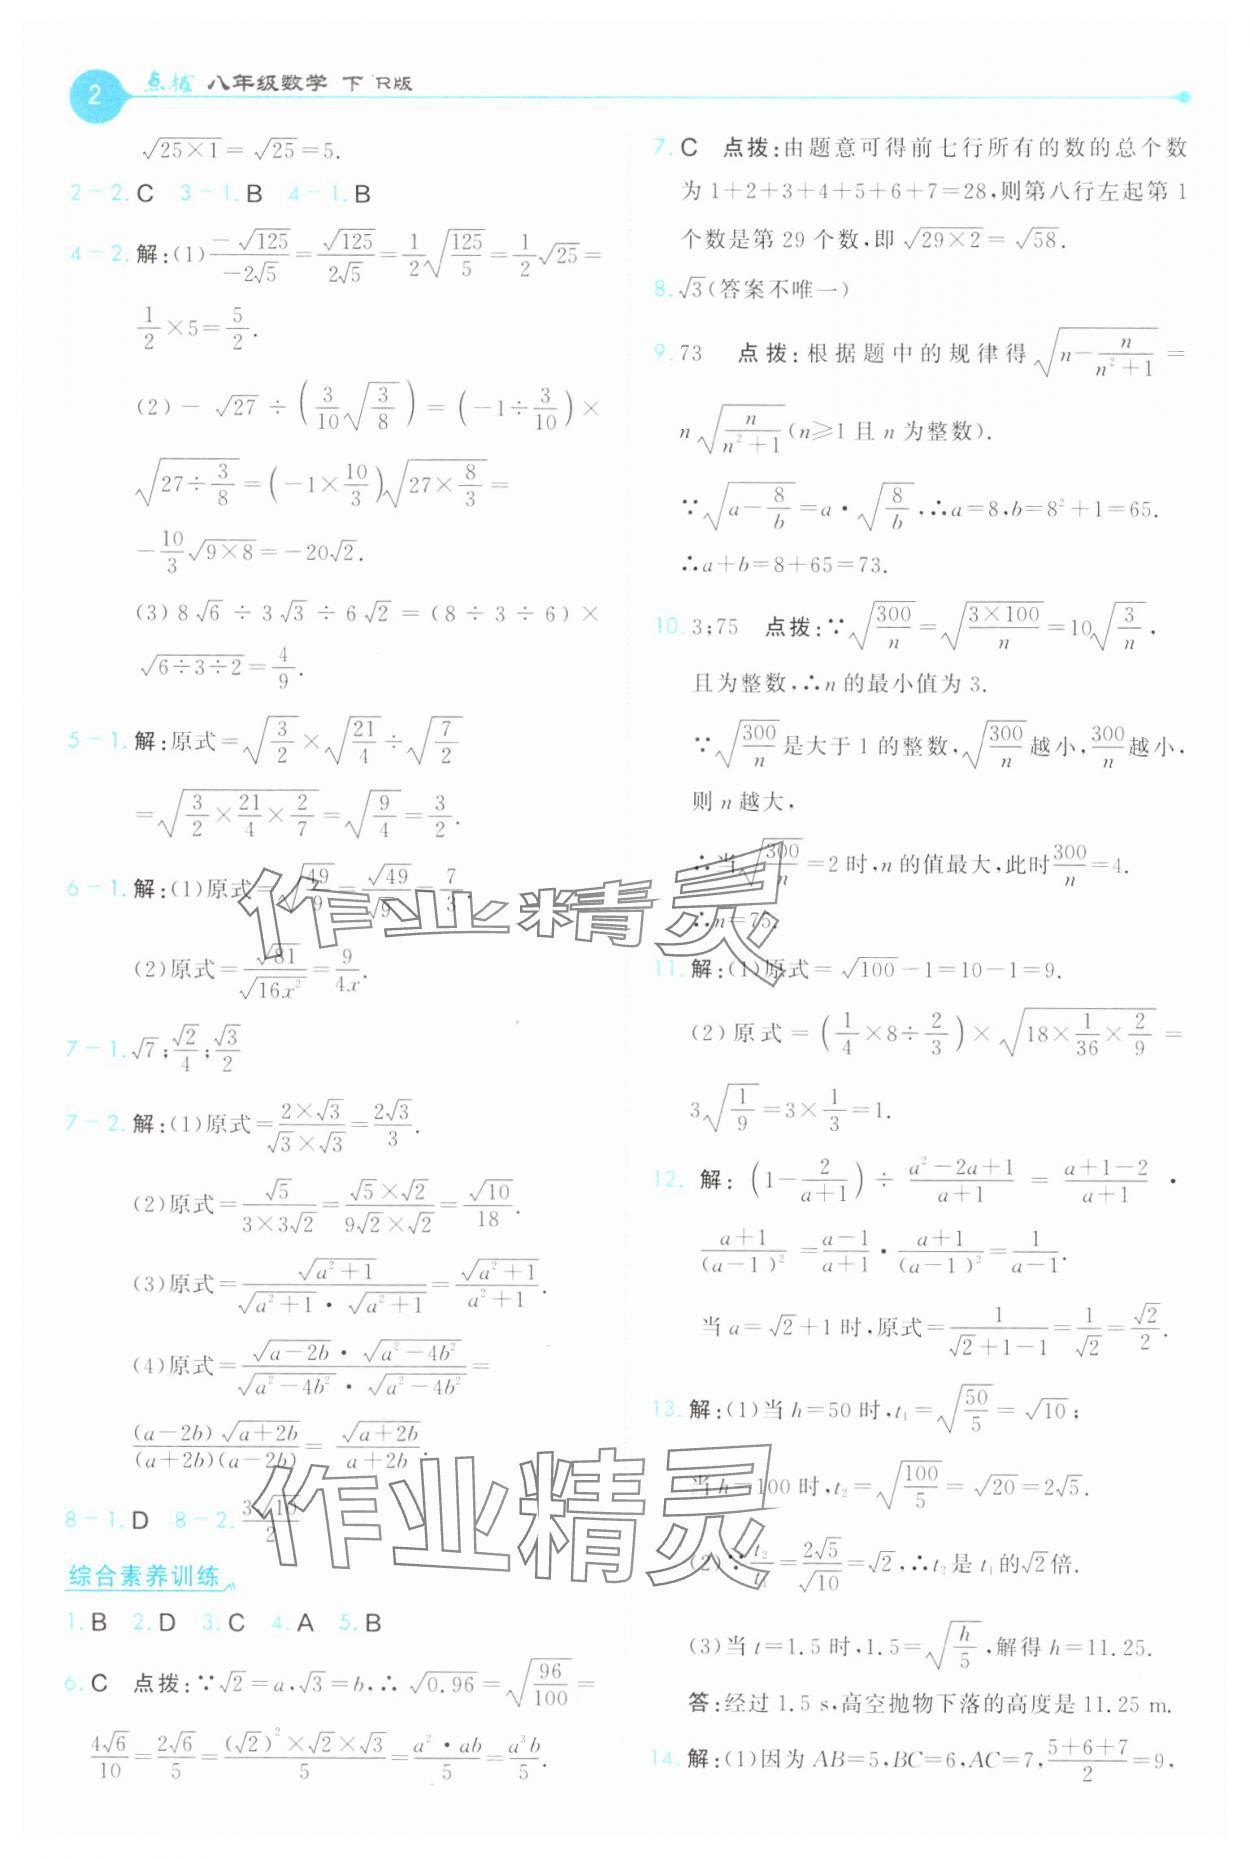 2 点拨 八年级数学 下 R版
√(25×1)=√25=5.
2-2. C 3-1. B 4-1. B
4-2. 解:(1) (-√125)/(-2√5)=√125/(2√5)=(1/2)√(125/5)=(1/2)√25=
(1/2)×5=5/2.
(2)-√27÷((3/10)√(3/8))=(-1÷3/10)×
√(27÷3/8)=(-1×10/3)√(27×8/3)=
-(10/3)√(9×8)=-20√2.
(3)8√6÷3√3÷6√2=(8÷3÷6)×
√(6÷3÷2)=4/9.
5-1. 解:原式=√(3/2)×√(21/4)÷√(7/2)
=√(3/2×21/4×2/7)=√(9/4)=3/2.
6-1. 解:(1)原式=√(49/9)=√49/√9=7/3.
(2)原式=√81/√(16x²)=9/(4x).
7-1. √7;√2/4;√3/2
7-2. 解:(1)原式=(2×√3)/(√3×√3)=2√3/3.
(2)原式=√5/(3×3√2)=(√5×√2)/(9√2×√2)=√10/18.
(3)原式=√(a²+1)/(√(a²+1)•√(a²+1))=√(a²+1)/(a²+1).
(4)原式=(√(a-2b)•√(a²-4b²))/(√(a²-4b²)•√(a²-4b²))=
((a-2b)√(a+2b))/((a+2b)(a-2b))=√(a+2b)/(a+2b).
8-1. D 8-2. 3√10/2
综合素养训练
1. B 2. D 3. C 4. A 5. B
6. C 点拨:∵√2=a,√3=b,∴√0.96=√(96/100)=
4√6/10=2√6/5=((√2)²×√2×√3)/5=(a²•ab)/5=a³b/5.
7. C 点拨:由题意可得前七行所有的数的总个数
为1+2+3+4+5+6+7=28,则第八行左起第1
个数是第29个数,即√(29×2)=√58.
8. √3(答案不唯一)
9. 73 点拨:根据题中的规律得√(n-n/(n²+1))=
n√(n/(n²+1))(n≥1且n为整数).
∵√(a-8/b)=a•√(8/b),∴a=8,b=8²+1=65.
∴a+b=8+65=73.
10. 3;75 点拨:∵√(300/n)=√((3×100)/n)=10√(3/n),
且为整数,∴n的最小值为3.
∵√(300/n)是大于1的整数,√(300/n)越小,300/n越小,
则n越大,
∴当√(300/n)=2时,n的值最大,此时300/n=4.
∴n=75.
11. 解:(1)原式=√100-1=10-1=9.
(2)原式=(1/4×8÷2/3)×√(18×1/36×2/9)=
3√(1/9)=3×1/3=1.
12. 解:(1-2/(a+1))÷(a²-2a+1)/(a+1)=(a+1-2)/(a+1)•
(a+1)/(a-1)²=(a-1)/(a+1)•(a+1)/(a-1)²=1/(a-1).
当a=√2+1时,原式=1/(√2+1-1)=1/√2=√2/2.
13. 解:(1)当h=50时,t₁=√(50/5)=√10;
当h=100时,t₂=√(100/5)=√20=2√5.
(2)∵t₂/t₁=2√5/√10=√2,∴t₂是t₁的√2倍.
(3)当t=1.5时,1.5=√(h/5),解得h=11.25.
答:经过1.5 s,高空抛物下落的高度是11.25 m.
14. 解:(1)因为AB=5,BC=6,AC=7,(5+6+7)/2=9,
作业精灵
作业精灵